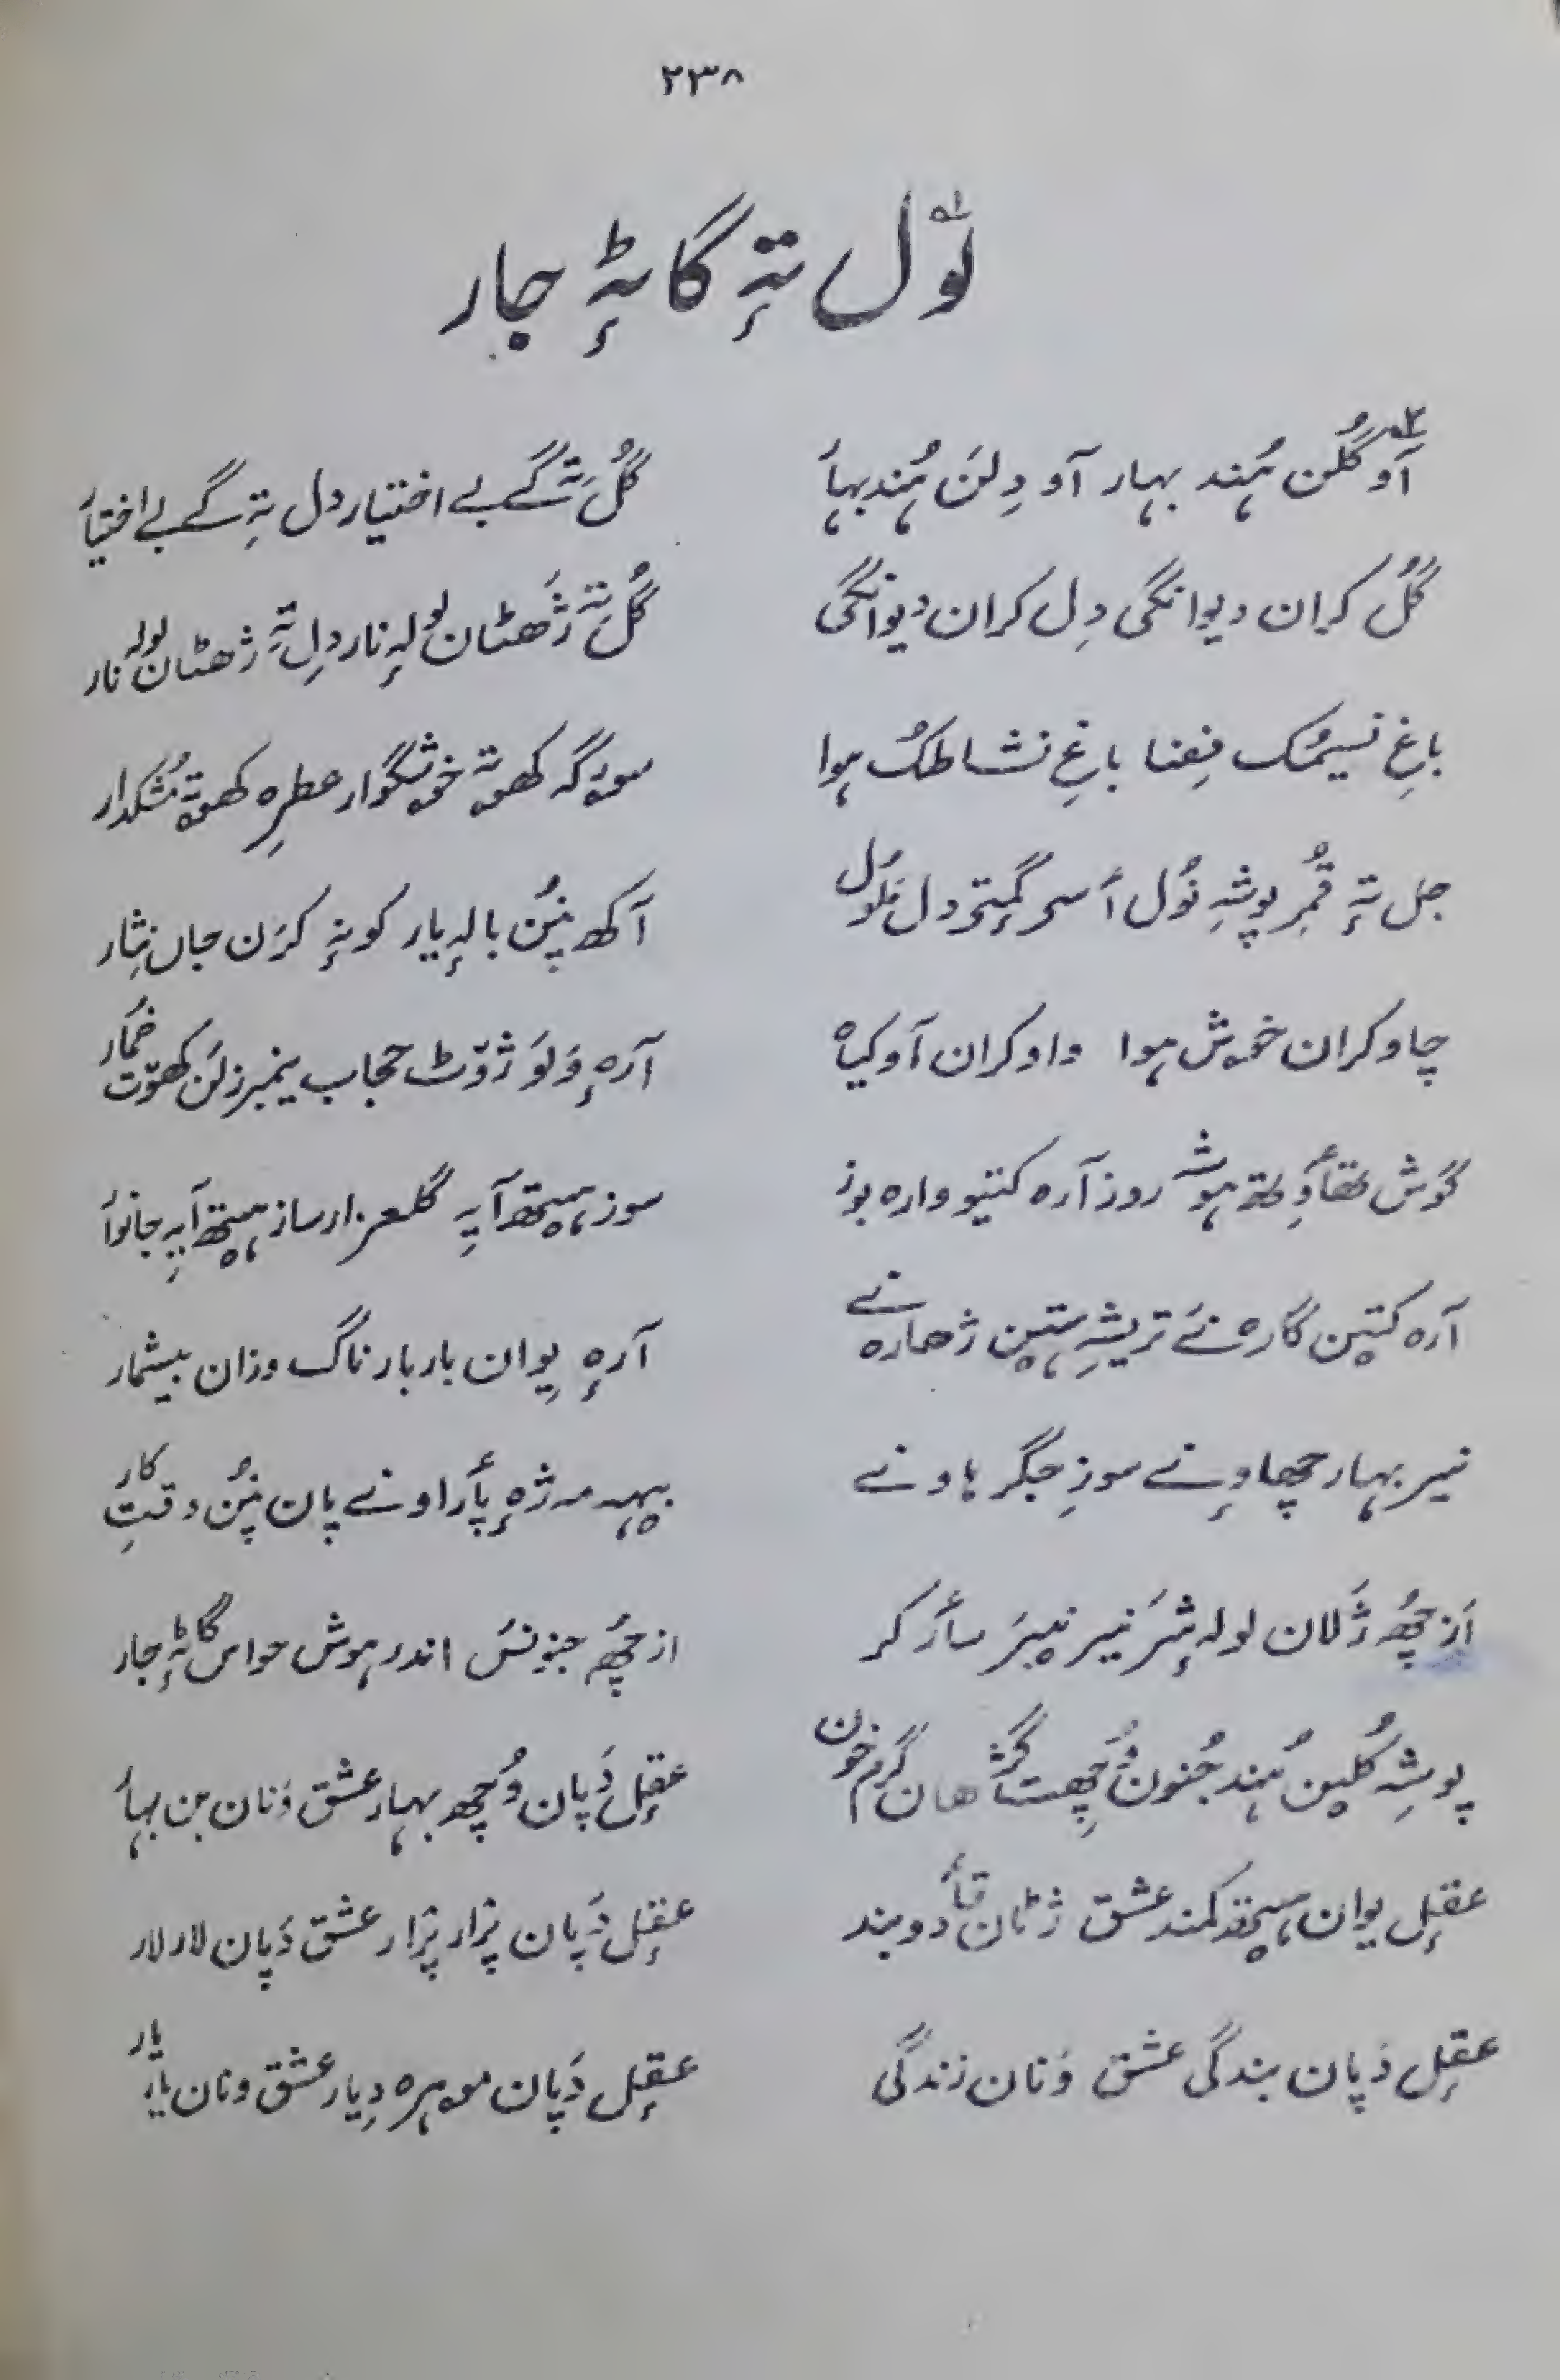 ۲۳۸
لوٚل تہٕ گاٹہٕ جار
آو گُلن ہُند بہار آو دِلنَ ہُند بہاٗ
گُل تہٕ گے بے اختیار دل تہٕ گے بے اختیاٗ
گُل کران دیوانگی دِل کران دیوانگی
گُل تہٕ ژَھٹان لولہٕ نار دِل تہٕ ژھٹان لولہٕ نار
باغِ نسیمُک فِضا باغِ نشاطُک ہوا
سورٕگہ کھوتہٕ خوشگوار عطرِہ کھوتہٕ مُشکدار
جل تہٕ قُمِر پوشِہ نوٗل أسۍ گمٕتۍ دل ملوٗل
آکھ پنُن بالہٕ یار کونہٕ کرَن جاں نِثار
چاو کران خوش ہوا واو کران آو کیاہ
آرہٕ وَلَو ژوٚٹ حجاب ینمبرزلَن کھوٚت خُمار
گوش تھأوِتھ ہوشہ روز آرہ کتیو وارہ بوز
سوز ہیٚتھ آیہِ گلعزار ساز ہیٚتھ آیہِ جانوأ
آرہ کتین گارہ نے تریشہِ ہتین ژھارہ نے
آرہٕ یِوان بار بار ناگ وزان بیشمار
نیر بہار چھاوٕنے سوزِ جگر ہاونے
بیہہ مہ ژہٕ پأراونے پان پنُن وقتِ کار
اَز چھُ ژَلان لولہ شَر نیر نیبَر سأر کر
از چھُ جنونَس اندر ہوش حواس گاٹہٕ جار
پوشِہ گُلین ہُند جُنون وُچھِت گژھان گرم خون
عقٕل دَپان وُچھ بہار عشق وَنان بن بہاٗ
عقٕل یوان ہیٚتھ کمند عشق ژٹان قأد و بند
عقٕل دَپان پرٛار پرٛار عشق دَپان لار لار
عقٕل دَپان بندگی عشق وَنان زندگی
عقٕل دَپان موہرہ دِیار عشق ونان یارٕ یار